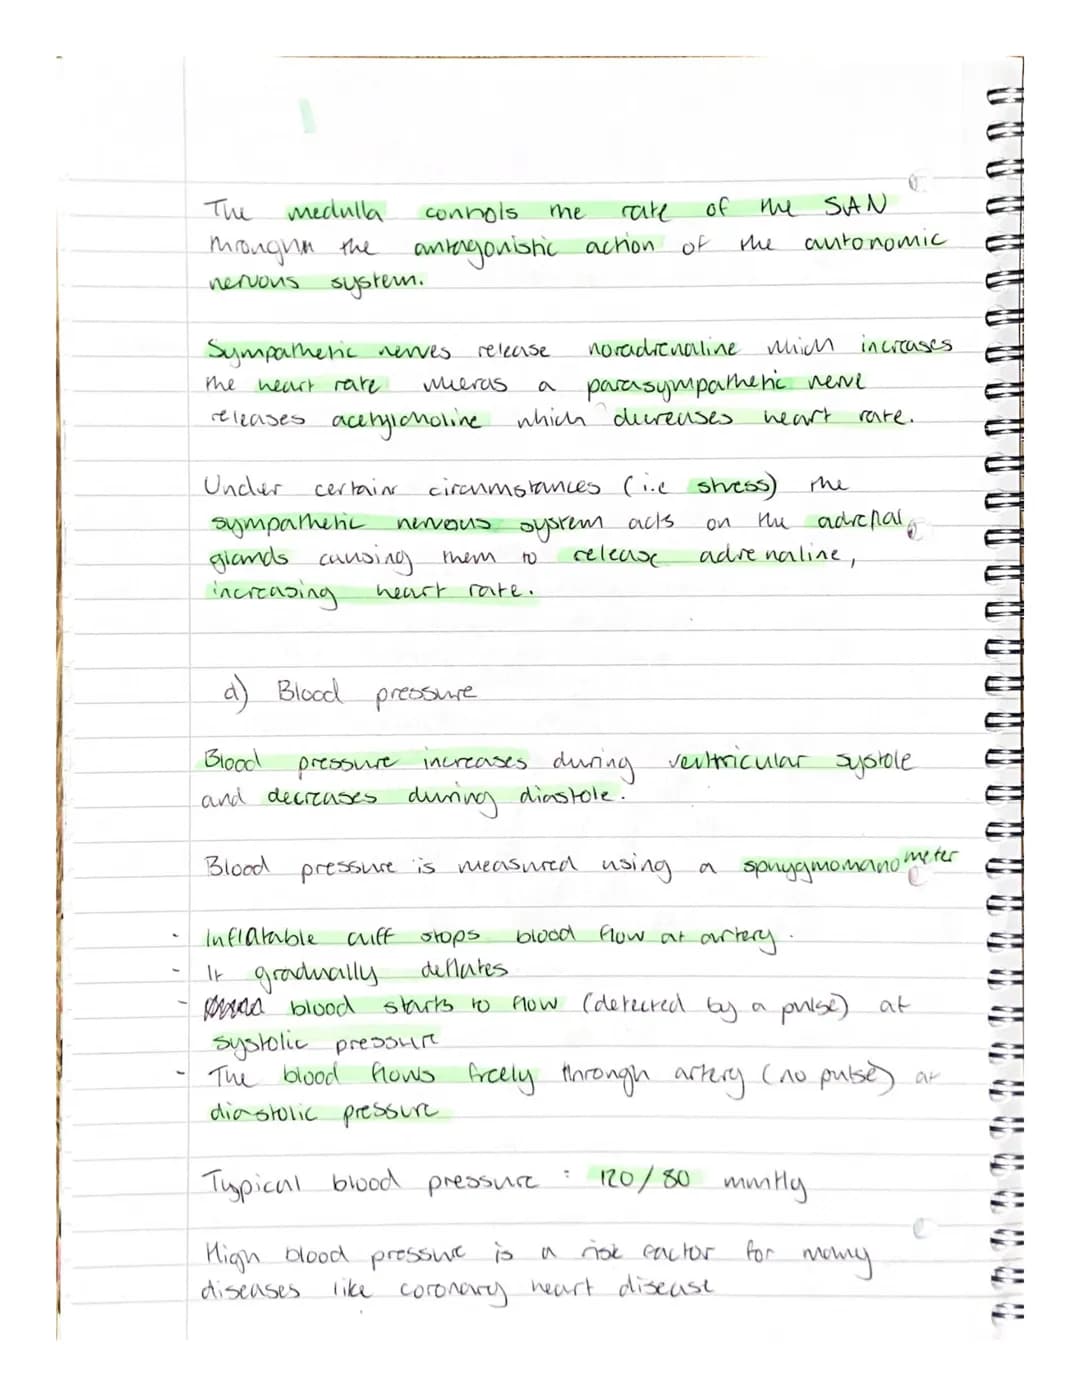 The medulla controls the rate of the SAN
through the antagonistic action of the autonomic
nervous system.
Sympathetic nerves release noradrenaline which increases
the heart rate wheras a parasympathetic nerve
releases acetylcholine which decreases heart rate.
Under certain circumstances (i.e stress) the
sympathetic nervous system acts on the adrenal
glands causing them to release adrenaline,
increasing heart rate.
d) Blood pressure
Blood pressure increases during ventricular systole
and decreases during diastole.
Blood pressure is measured using a sphygmomanometer
- Inflatable cuff stops blood flow at artery.
- It gradually deflates
- blood starts to flow (detected by a pulse) at
systolic pressure
- The blood flows freely through artery (no pulse) at
diastolic pressure
Typical blood pressure : 120/80 mmHg
High blood pressure is a risk factor for many
diseases like coronary heart disease